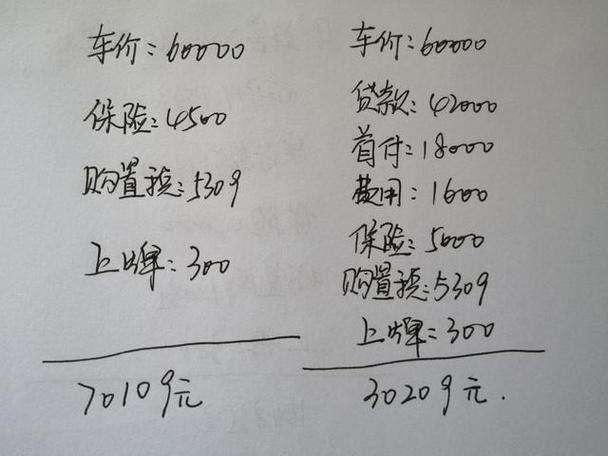 车价:60000
保险:4500
购置税:5309
上牌:300
70109元
车价:60000
贷款:42000
首付:18000
费用:1600
保险:5000
购置税:5309
上牌:300
30209元.